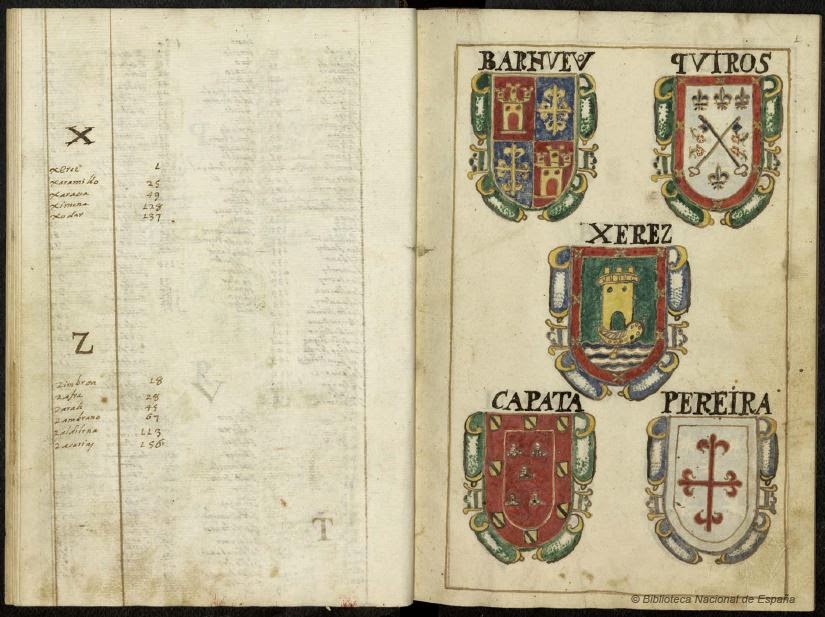 X
xerez 1
xaramillo 25
xaraua 49
ximena 128
xodar 137
Z
zimbron 18
28
45
zambrano 67
113
156
T
1
BARNVEVO
QVIROS
XEREZ
CAPATA
PEREIRA
© Biblioteca Nacional de España